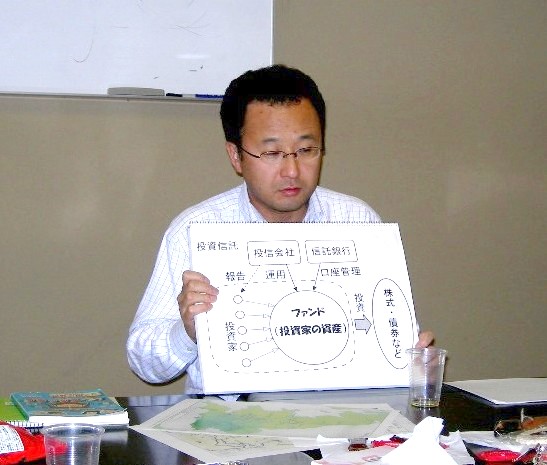 投資信託
投信会社
信託銀行
報告
運用
口座管理
投資家
ファンド
(投資家の資産)
投資
株式・債券など